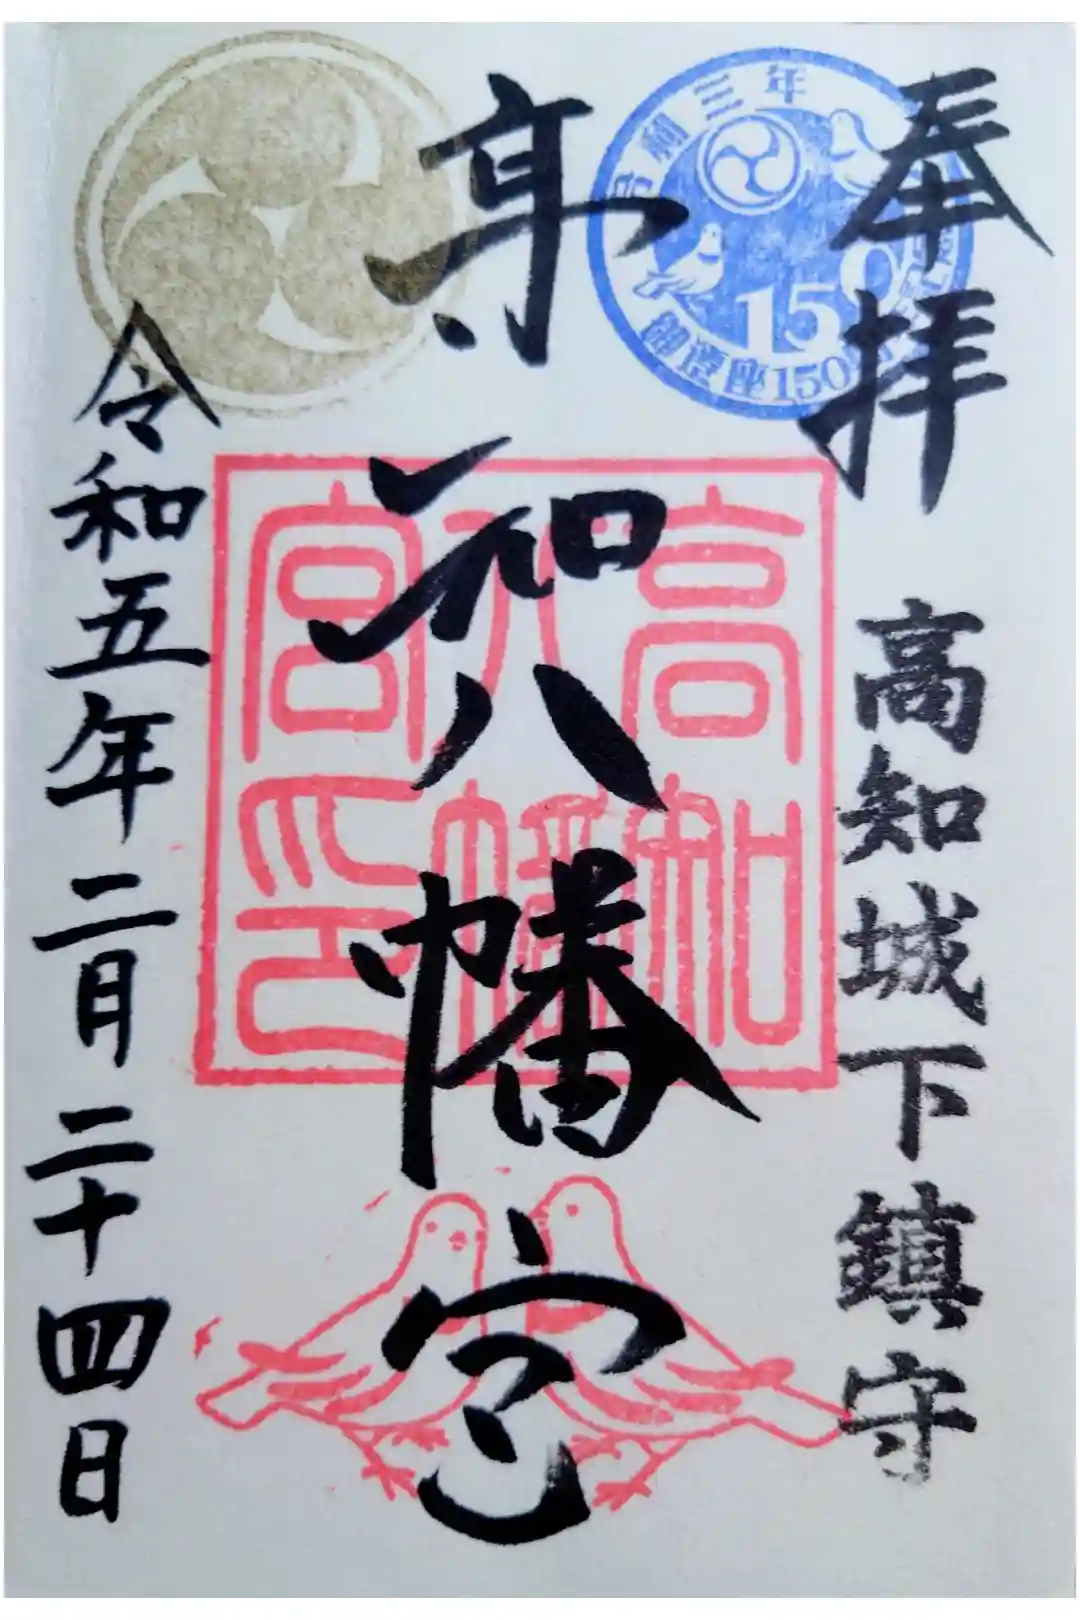 奉拝
高知城下鎮守
高知八幡宮
令和五年二月二十四日
高知
八幡
宮印
150
御遷座150